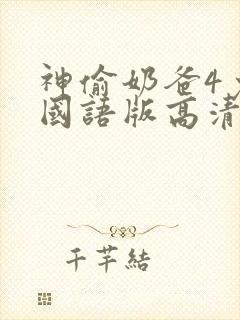 神偷奶爸4
國語版高清
千芊結